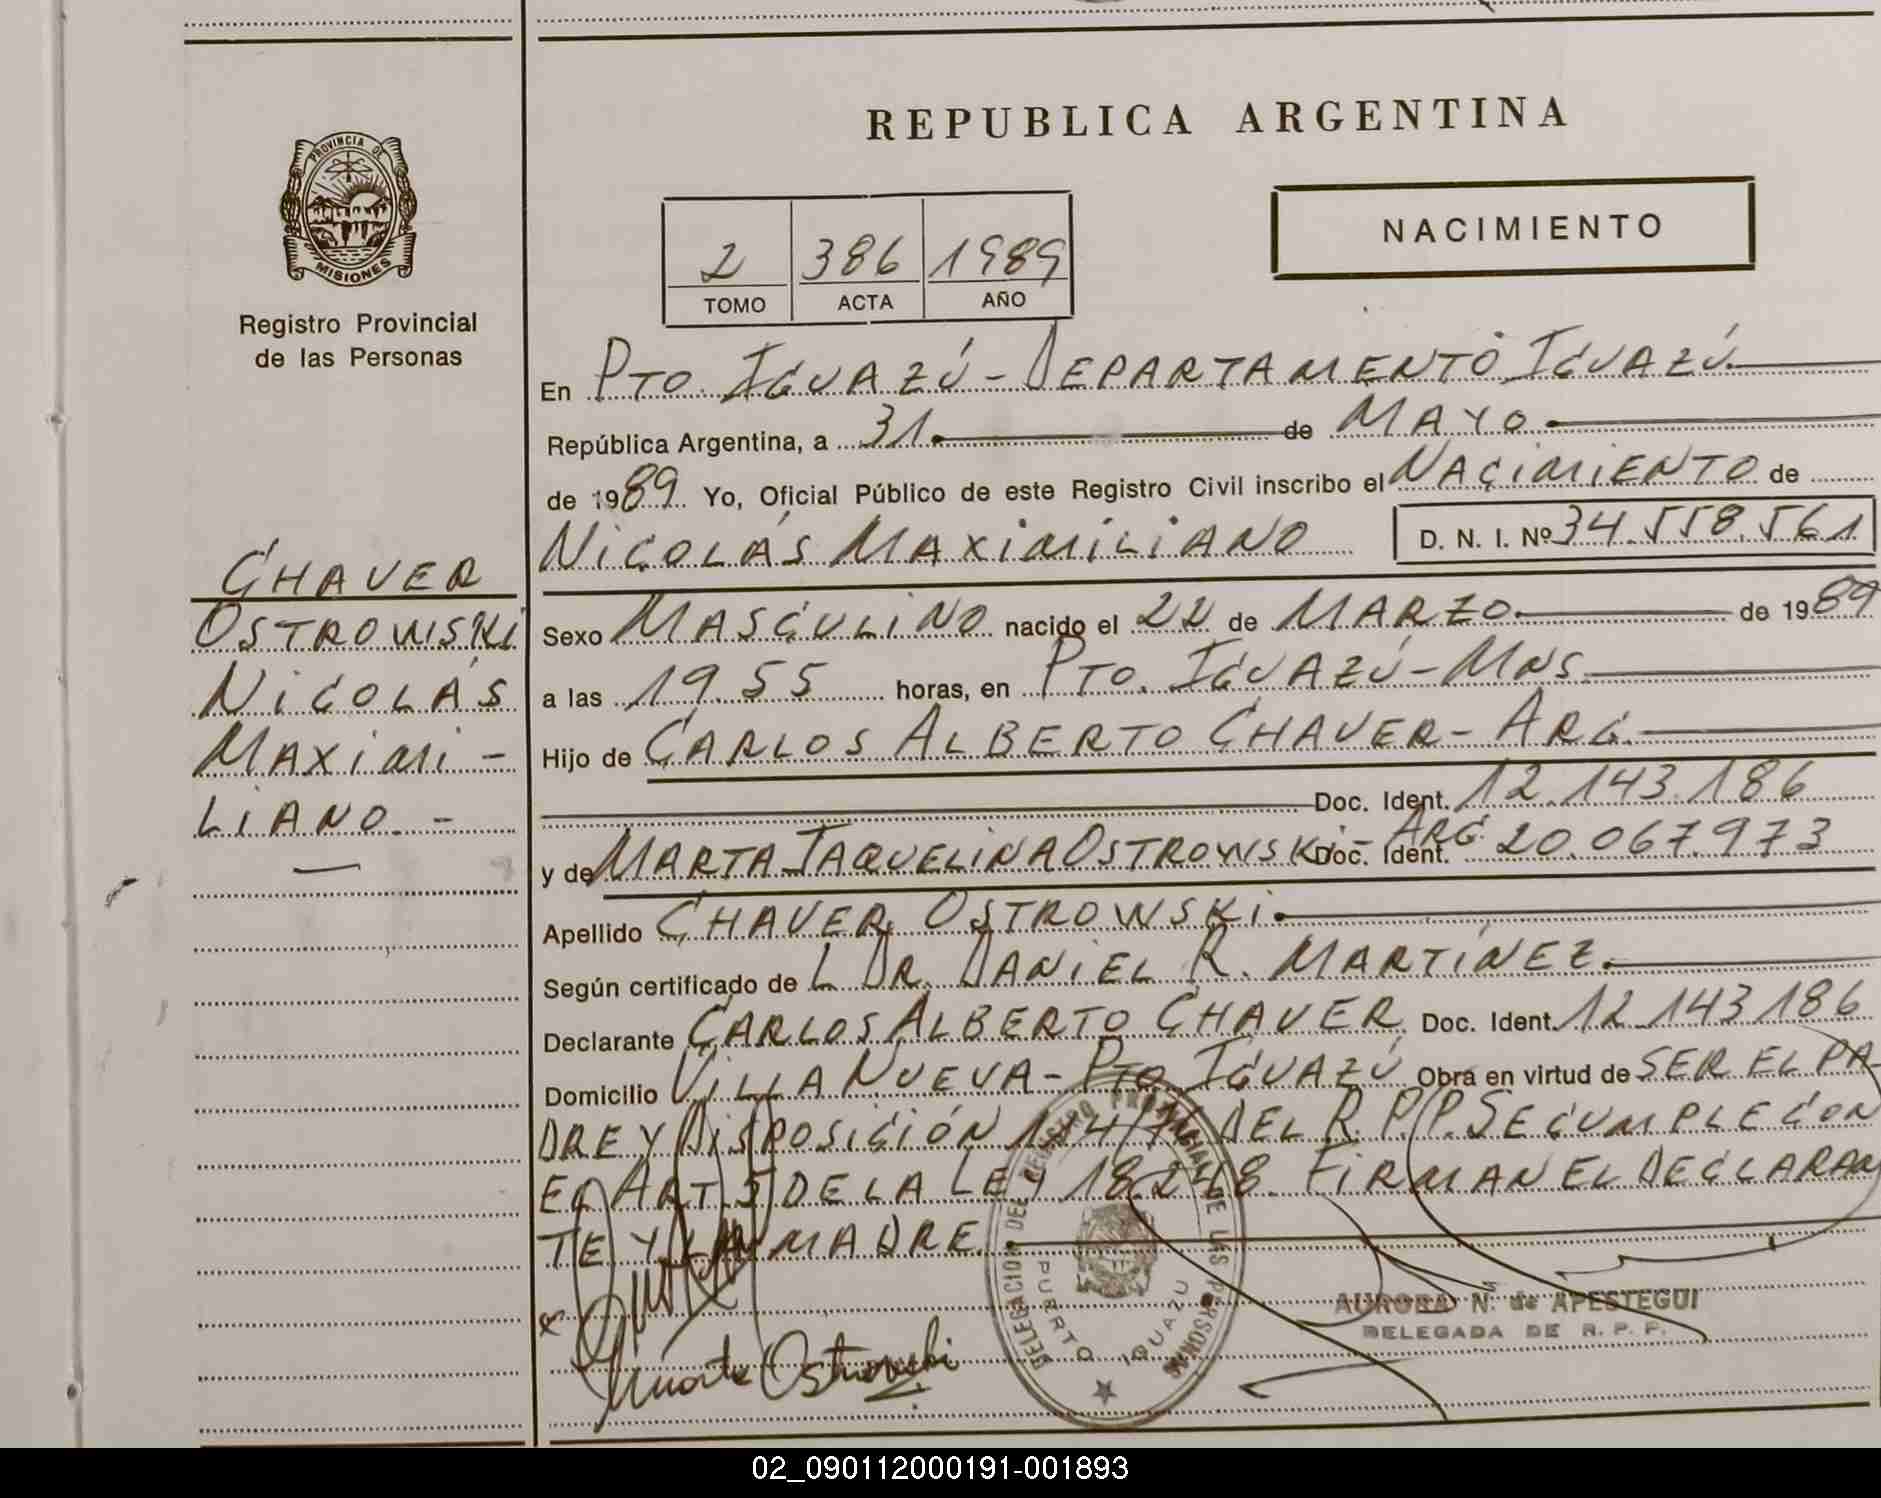 REPUBLICA ARGENTINA
PROVINCIA DE
MISIONES
Registro Provincial
de las Personas
NACIMIENTO
2 386 1989
TOMO ACTA AÑO
CHAVER
OSTROWSKI
NICOLÁS
MAXIMI-
LIANO.-
En PTO. IGUAZÚ - DEPARTAMENTO IGUAZÚ
República Argentina, a 31 de MAYO
de 1989 Yo, Oficial Público de este Registro Civil inscribo el NACIMIENTO de
NICOLÁS MAXIMILIANO D. N. I. Nº 34.558.561
Sexo MASCULINO nacido el 22 de MARZO de 1989
a las 19.55 horas, en PTO. IGUAZÚ - MNS.
Hijo de CARLOS ALBERTO CHAVER - ARG.
Doc. Ident. 12.143.186
y de MARTA JAQUELINA OSTROWSKI - ARG. Doc. Ident. 20.067.973
Apellido CHAVER OSTROWSKI
Según certificado de L DR. DANIEL R. MARTÍNEZ.
Declarante CARLOS ALBERTO CHAVER Doc. Ident. 12.143.186
Domicilio VILLA NUEVA - PTO. IGUAZÚ Obra en virtud de SER EL PA-
DRE Y DISPOSICIÓN DEL R.P.P. SE CUMPLE CON
EL ART. 5 DE LA LEY 18.248. FIRMAN EL DECLARAN
TE Y LA MADRE.
DELEGACION DEL REGISTRO PROVINCIAL DE LAS PERSONAS
PUERTO IGUAZU
AURORA N. de APESTEGUI
DELEGADA DE R. P. P.
Marta Ostrowski
02_090112000191-001893